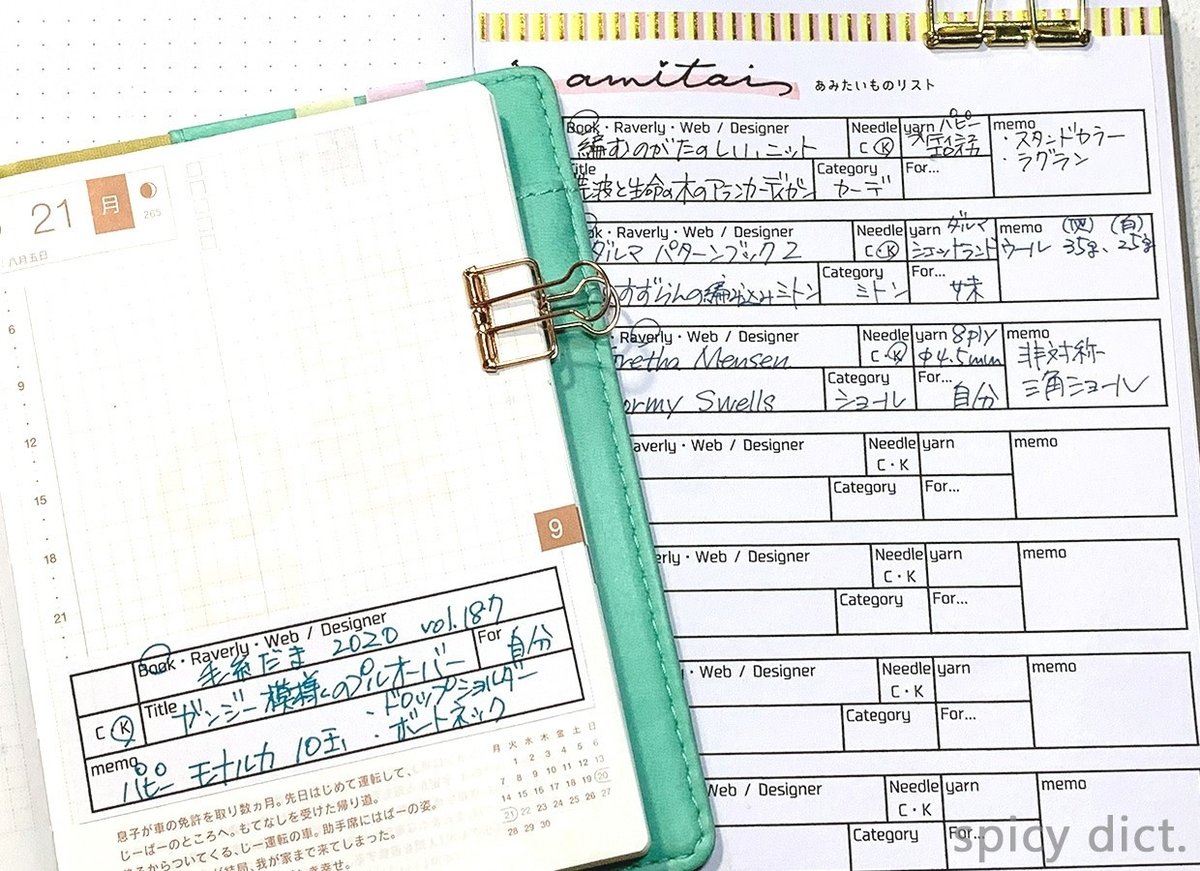 21 月
265
八月五日
6
9
12
15
18
21
9
Book・Raverly・Web / Designer
毛糸だま 2020 vol.187
Title
ガンジー模様のプルオーバー
For
自分
C K
memo
パピー モナルカ 10玉
・ドロップショルダー
・ボートネック
月 火 水 木 金 土 日
1 2 3 4 5 6
7 8 9 10 11 12 13
14 15 16 17 18 19 20
21 22 23 24 25 26 27
28 29 30
息子が車の免許を取り数ヵ月。先日はじめて運転して、
じーばーのところへ。もてなしを受けた帰り道。
からついてくる、じー運転の車。助手席にはばーの姿。
結局、我が家まで来てしまった。
幸せ。
amitai
あみたいものリスト
Book・Raverly・Web / Designer
編むのがたのしい、ニット
Needle
C K
yarn
パピー
memo
・スタンドカラー
・ラグラン
Title
波と生命の木のアランカーディガン
Category
カーデ
For...
Raverly・Web / Designer
ダルマ パターンブック2
Needle
C・K
yarn ダルマ
シェットランド
memo (紺) (白)
ウール 35g、25g
すずらんの編み込みミトン
Category
ミトン
For...
妹
Raverly・Web / Designer
Gretha Mensen
Needle
C・K
yarn 8ply
φ4.5mm
memo
非対称
三角ショール
ormy Swells
Category
ショール
For...
自分
averly・Web / Designer
Needle
C・K
yarn
memo
Category
For...
erly・Web / Designer
Needle
C・K
yarn
memo
Category
For...
y・Web / Designer
Needle
C・K
yarn
memo
Category
For...
・Web / Designer
Needle
C・K
yarn
memo
Category
For...
spicy dict.